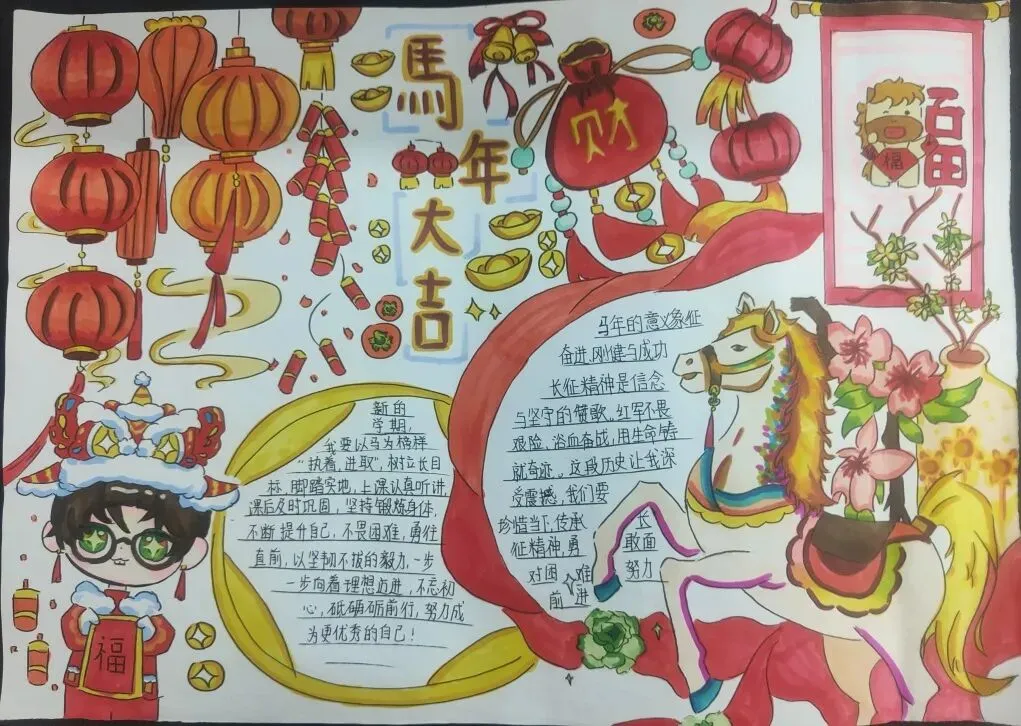 馬年大吉
财
福
福
福
新的
学期，
我要以马为榜样
“执着，进取”，树立长目
标，脚踏实地，上课认真听讲，
课后及时巩固，坚持锻炼身体，
不断提升自己，不畏困难，勇往
直前，以坚韧不拔的毅力，一步
一步向着理想迈进，不忘初
心，砥砺前行，努力成
为更优秀的自己！
马年的意义象征
奋进、刚健与成功
长征精神是信念
与坚守的赞歌、红军不畏
艰险、浴血奋战，用生命铸
就奇迹。这段历史让我深
受震撼，我们要
珍惜当下，传承 长
征精神，勇 敢面
对困 难 努力
前 进